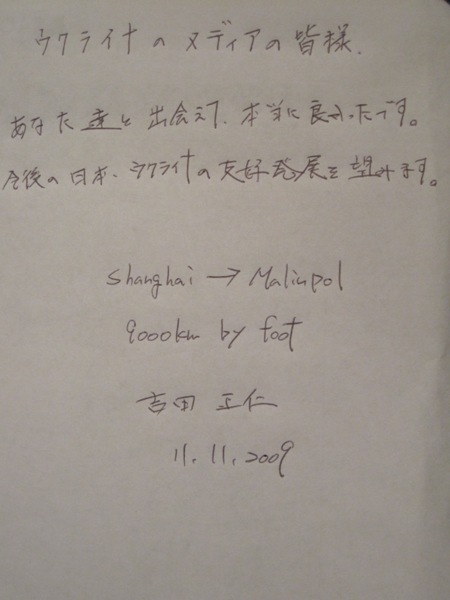 ウクライナのメディアの皆様.
あなた達と出会えて、本当に良かったです。
今後の日本、ウクライナの友好発展を望みます。
Shanghai → Malinpol
9000km by foot
吉田 正仁
11.11.2009